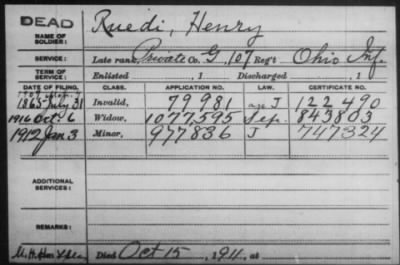 DEAD
NAME OF SOLDIER: Ruedi, Henry
SERVICE: Late rank, Private Co. G, 107 Reg't Ohio Inf.
TERM OF SERVICE: Enlisted , 1 Discharged , 1
DATE OF FILING. CLASS. APPLICATION NO. LAW. CERTIFICATE NO.
1865 July 31 Invalid, 79981 J 122490
1916 Oct. 6 Widow, 1077,595 Sep. 843803
1912 Jan 3 Minor, 977836 J 747324
ADDITIONAL SERVICES:
REMARKS:
Died Oct 15, 1911, at